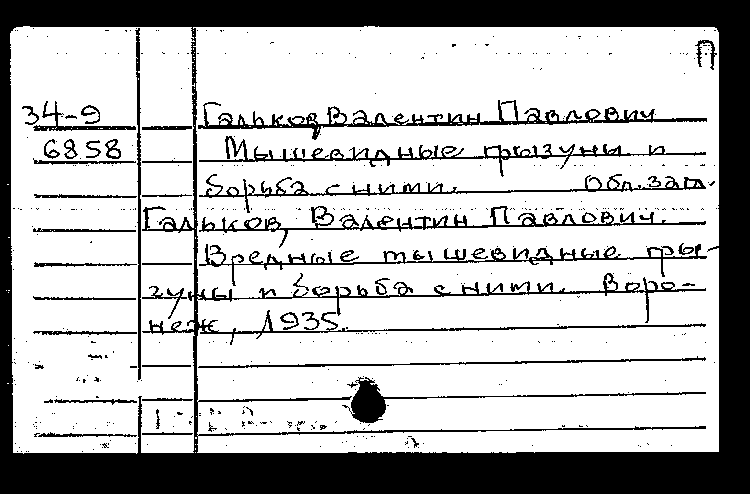 П
34-9 Гальков, Валентин Павлович
6858 Мышевидные грызуны и
борьба с ними. Обл. загл.
Гальков, Валентин Павлович.
Вредные мышевидные гры-
зуны и борьба с ними. Воро-
неж, 1935.